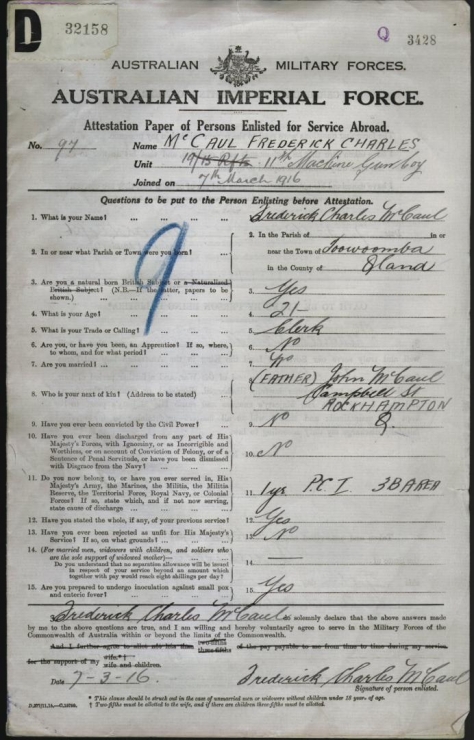 D 32158
Q 3428
AUSTRALIAN MILITARY FORCES.
AUSTRALIAN IMPERIAL FORCE.
Attestation Paper of Persons Enlisted for Service Abroad.
No. 97 Name McCAUL FREDERICK CHARLES
Unit 11th Machine Gun Coy
Joined on 7th March 1916
Questions to be put to the Person Enlisting before Attestation.
1. What is your Name? ... ... ... ... Frederick Charles McCaul
2. In or near what Parish or Town were you born? ... 2. In the Parish of in or
near the Town of Toowoomba
in the County of Qland
3. Are you a natural born British Subject or a Naturalised
British Subject? (N.B.—If the latter, papers to be
shown.) 3. Yes
4. What is your Age? ... ... ... ... 4. 21
5. What is your Trade or Calling? ... ... ... 5. Clerk
6. Are you, or have you been, an Apprentice? If so, where,
to whom, and for what period? 6. No
7. Are you married? ... ... ... ... 7. No
8. Who is your next of kin? (Address to be stated) ... 8. (FATHER) John McCaul
Campbell St
ROCKHAMPTON
Q.
9. Have you ever been convicted by the Civil Power? ... 9. No
10. Have you ever been discharged from any part of His
Majesty's Forces, with Ignominy, or as Incorrigible and
Worthless, or on account of Conviction of Felony, or of a
Sentence of Penal Servitude, or have you been dismissed
with Disgrace from the Navy? 10. No
11. Do you now belong to, or have you ever served in, His
Majesty's Army, the Marines, the Militia, the Militia
Reserve, the Territorial Force, Royal Navy, or Colonial
Forces? If so, state which, and if not now serving,
state cause of discharge 11. 1 yr P.C.I. 3B AREA
12. Have you stated the whole, if any, of your previous service? 12. Yes
13. Have you ever been rejected as unfit for His Majesty's
Service? If so, on what grounds? 13. No
14. (For married men, widowers with children, and soldiers who
are the sole support of widowed mother)—
Do you understand that no separation allowance will be issued
in respect of your service beyond an amount which
together with pay would reach eight shillings per day? 14. —
15. Are you prepared to undergo inoculation against small pox
and enteric fever? 15. Yes
9
I, Frederick Charles McCaul do solemnly declare that the above answers made
by me to the above questions are true, and I am willing and hereby voluntarily agree to serve in the Military Forces of the
Commonwealth of Australia within or beyond the limits of the Commonwealth.
And I further agree to allot not less than two-fifths
three-fifths of the pay payable to me from time to time during my service
for the support of my wife*†
wife and children.
Date 7-3-16. Frederick Charles McCaul
Signature of person enlisted.
* This clause should be struck out in the case of unmarried men or widowers without children under 18 years of age.
† Two-fifths must be allotted to the wife, and if there are children three-fifths must be allotted.